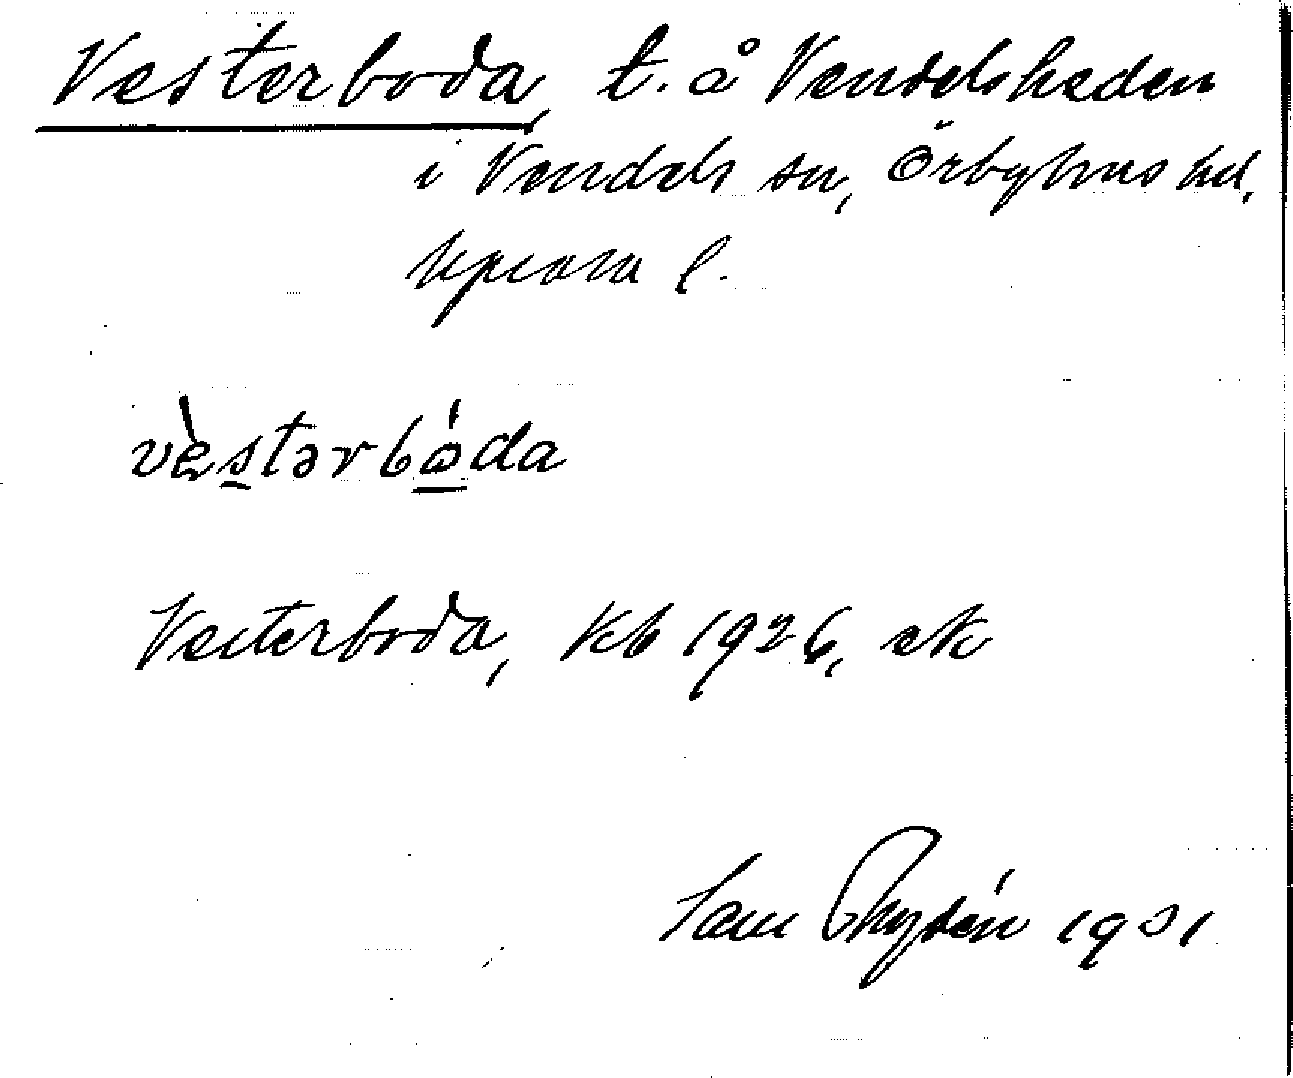 Vesterboda, t. å Vendelsheden
i Vendels sn, Örbyhus hd,
Uppsala l.
vèstərbóda
Vesterboda, Kb 1926, ek
Sam Rydén 1931